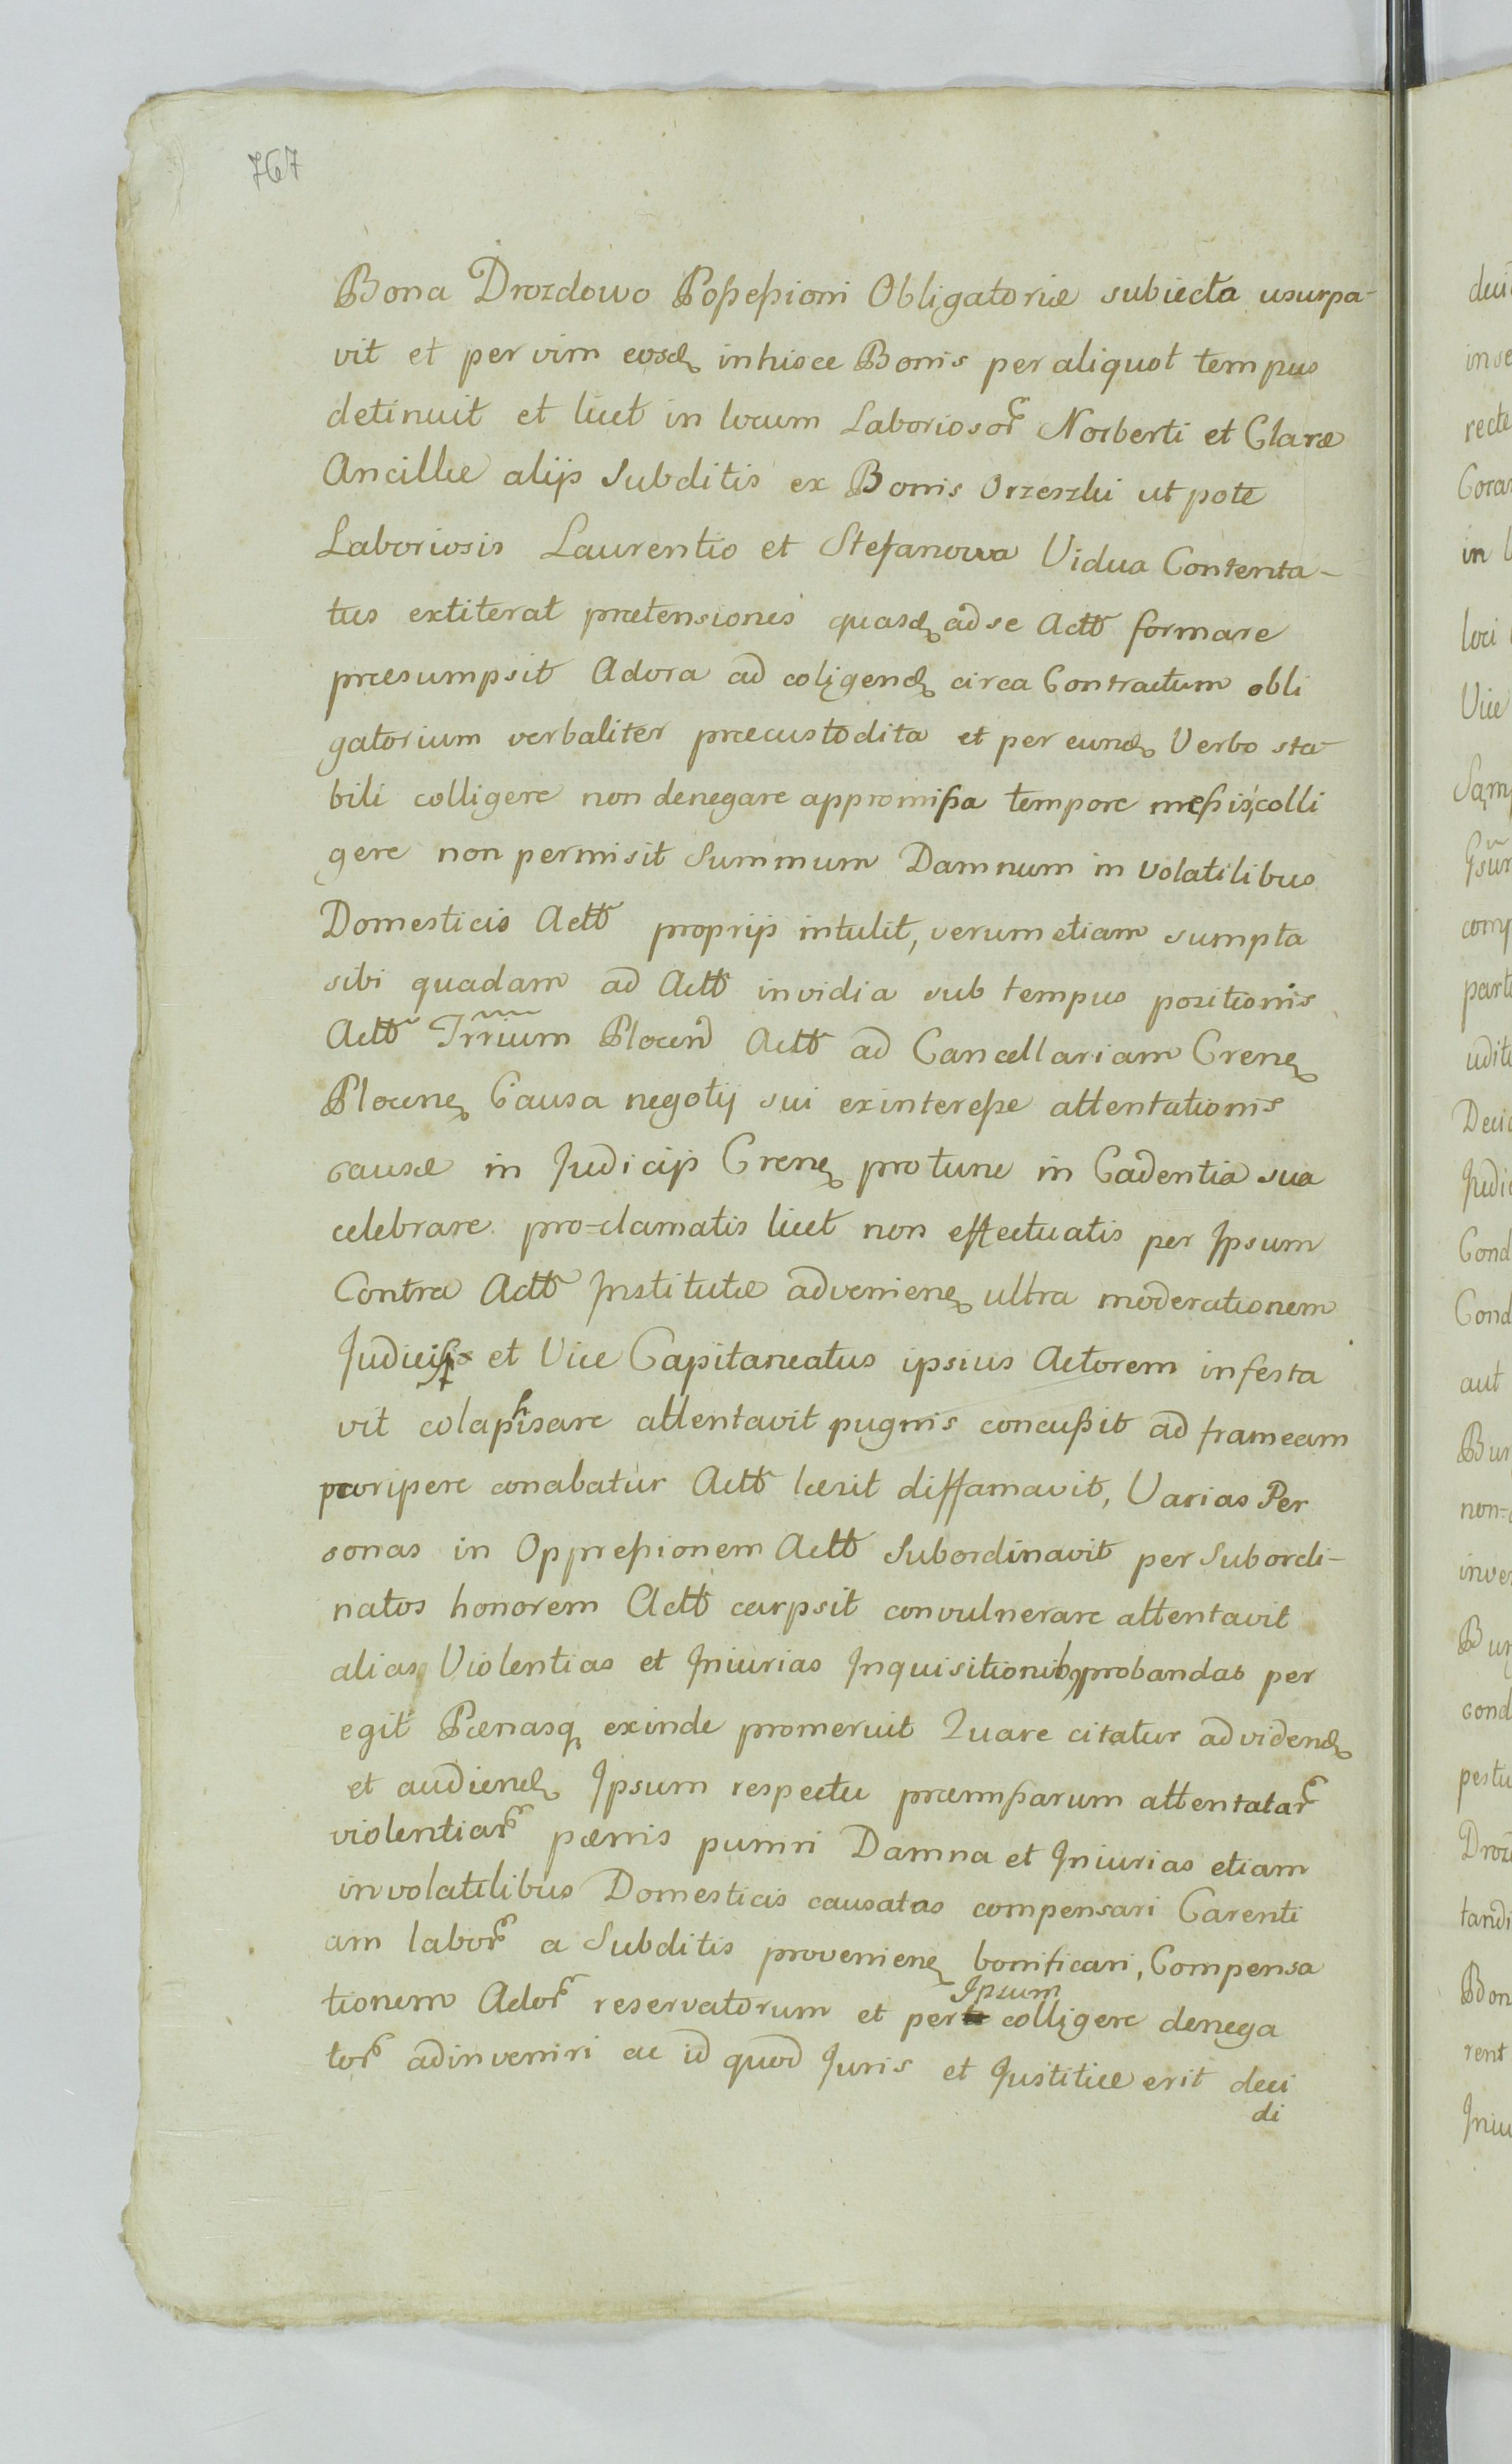 767
Bona Drozdowo Poßeßioni Obligatoriæ subiecta usurpa-
vit et per vim eosd in hisce Bonis per aliquot tempus
detinuit et licet in locum Laboriosor Norberti et Claræ
Ancillæ alijs Subditis ex Bonis Orzeszki ut pote
Laboriosis Laurentio et Stefanowa Vidua Contenta-
tus extiterat prætensiones quasd ad se Actt formare
præsumpsit Adora ad coligend circa Contractum obli
gatorium verbaliter præcustodita et per eund Verbo sta
bili colligere non denegare appromißa tempore meßis, colli
gere non permisit Summum Damnum in volatilibus
Domesticis Actt proprijs intulit, verum etiam sumpta
sibi quadam ad Actt invidia sub tempus positionis
Actt Trrium Plocen Actt ad Cancellariam Cren
Plocen Causa negotij sui ex intereße attentationis
causæ in Judicijs Cren pro tunc in Cadentia sua
celebrare pro-clamatis licet non effectuatis per Ipsum
Contra Actt Institutæ advenien ultra moderationem
et Vice Capitaneatus ipsius Actorem infesta
vit colaphisare attentavit pugnis concußit ad frameam
poripere conabatur Actt læsit diffamavit, Varias Per
sonas in Oppreßionem Actt Subordinavit per Subordi-
natos honorem Actt carpsit convulnerare attentavit
alias Violentias et Iniurias Inquisitionib9 probandas per
egit Pænasq exinde promeruit Quare citatur ad vidend
et audiend Ipsum respectu præmißarum attentatar
violentiar pænis puniri Damna et Iniurias etiam
in volatilibus Domesticis causatas compensari Carenti
am labor a Subditis provenien bonificari, Compensa
tionem Ador reservatorum et per Ipsum colligere denega
tor adinveniri ac id quod Juris et Justitiæ erit deci
di